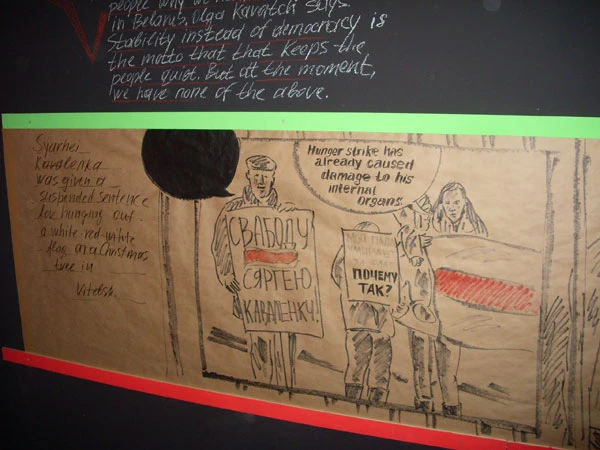 people why we
in Belarus, Olga Karatch says.
Stability instead of democracy is
the motto that that keeps the
people quiet. But at the moment,
we have none of the above.
Syarhei
Kavalenka
was given a
suspended sentence
for hunging out
a white-red-white
flag on a Christmas
tree in
Vitebsk.
Hunger strike has
already caused
damage to his
internal
organs.
СВАБОДУ
СЯРГЕЮ
КАВАЛЕНКУ!
ПОЧЕМУ
ТАК?